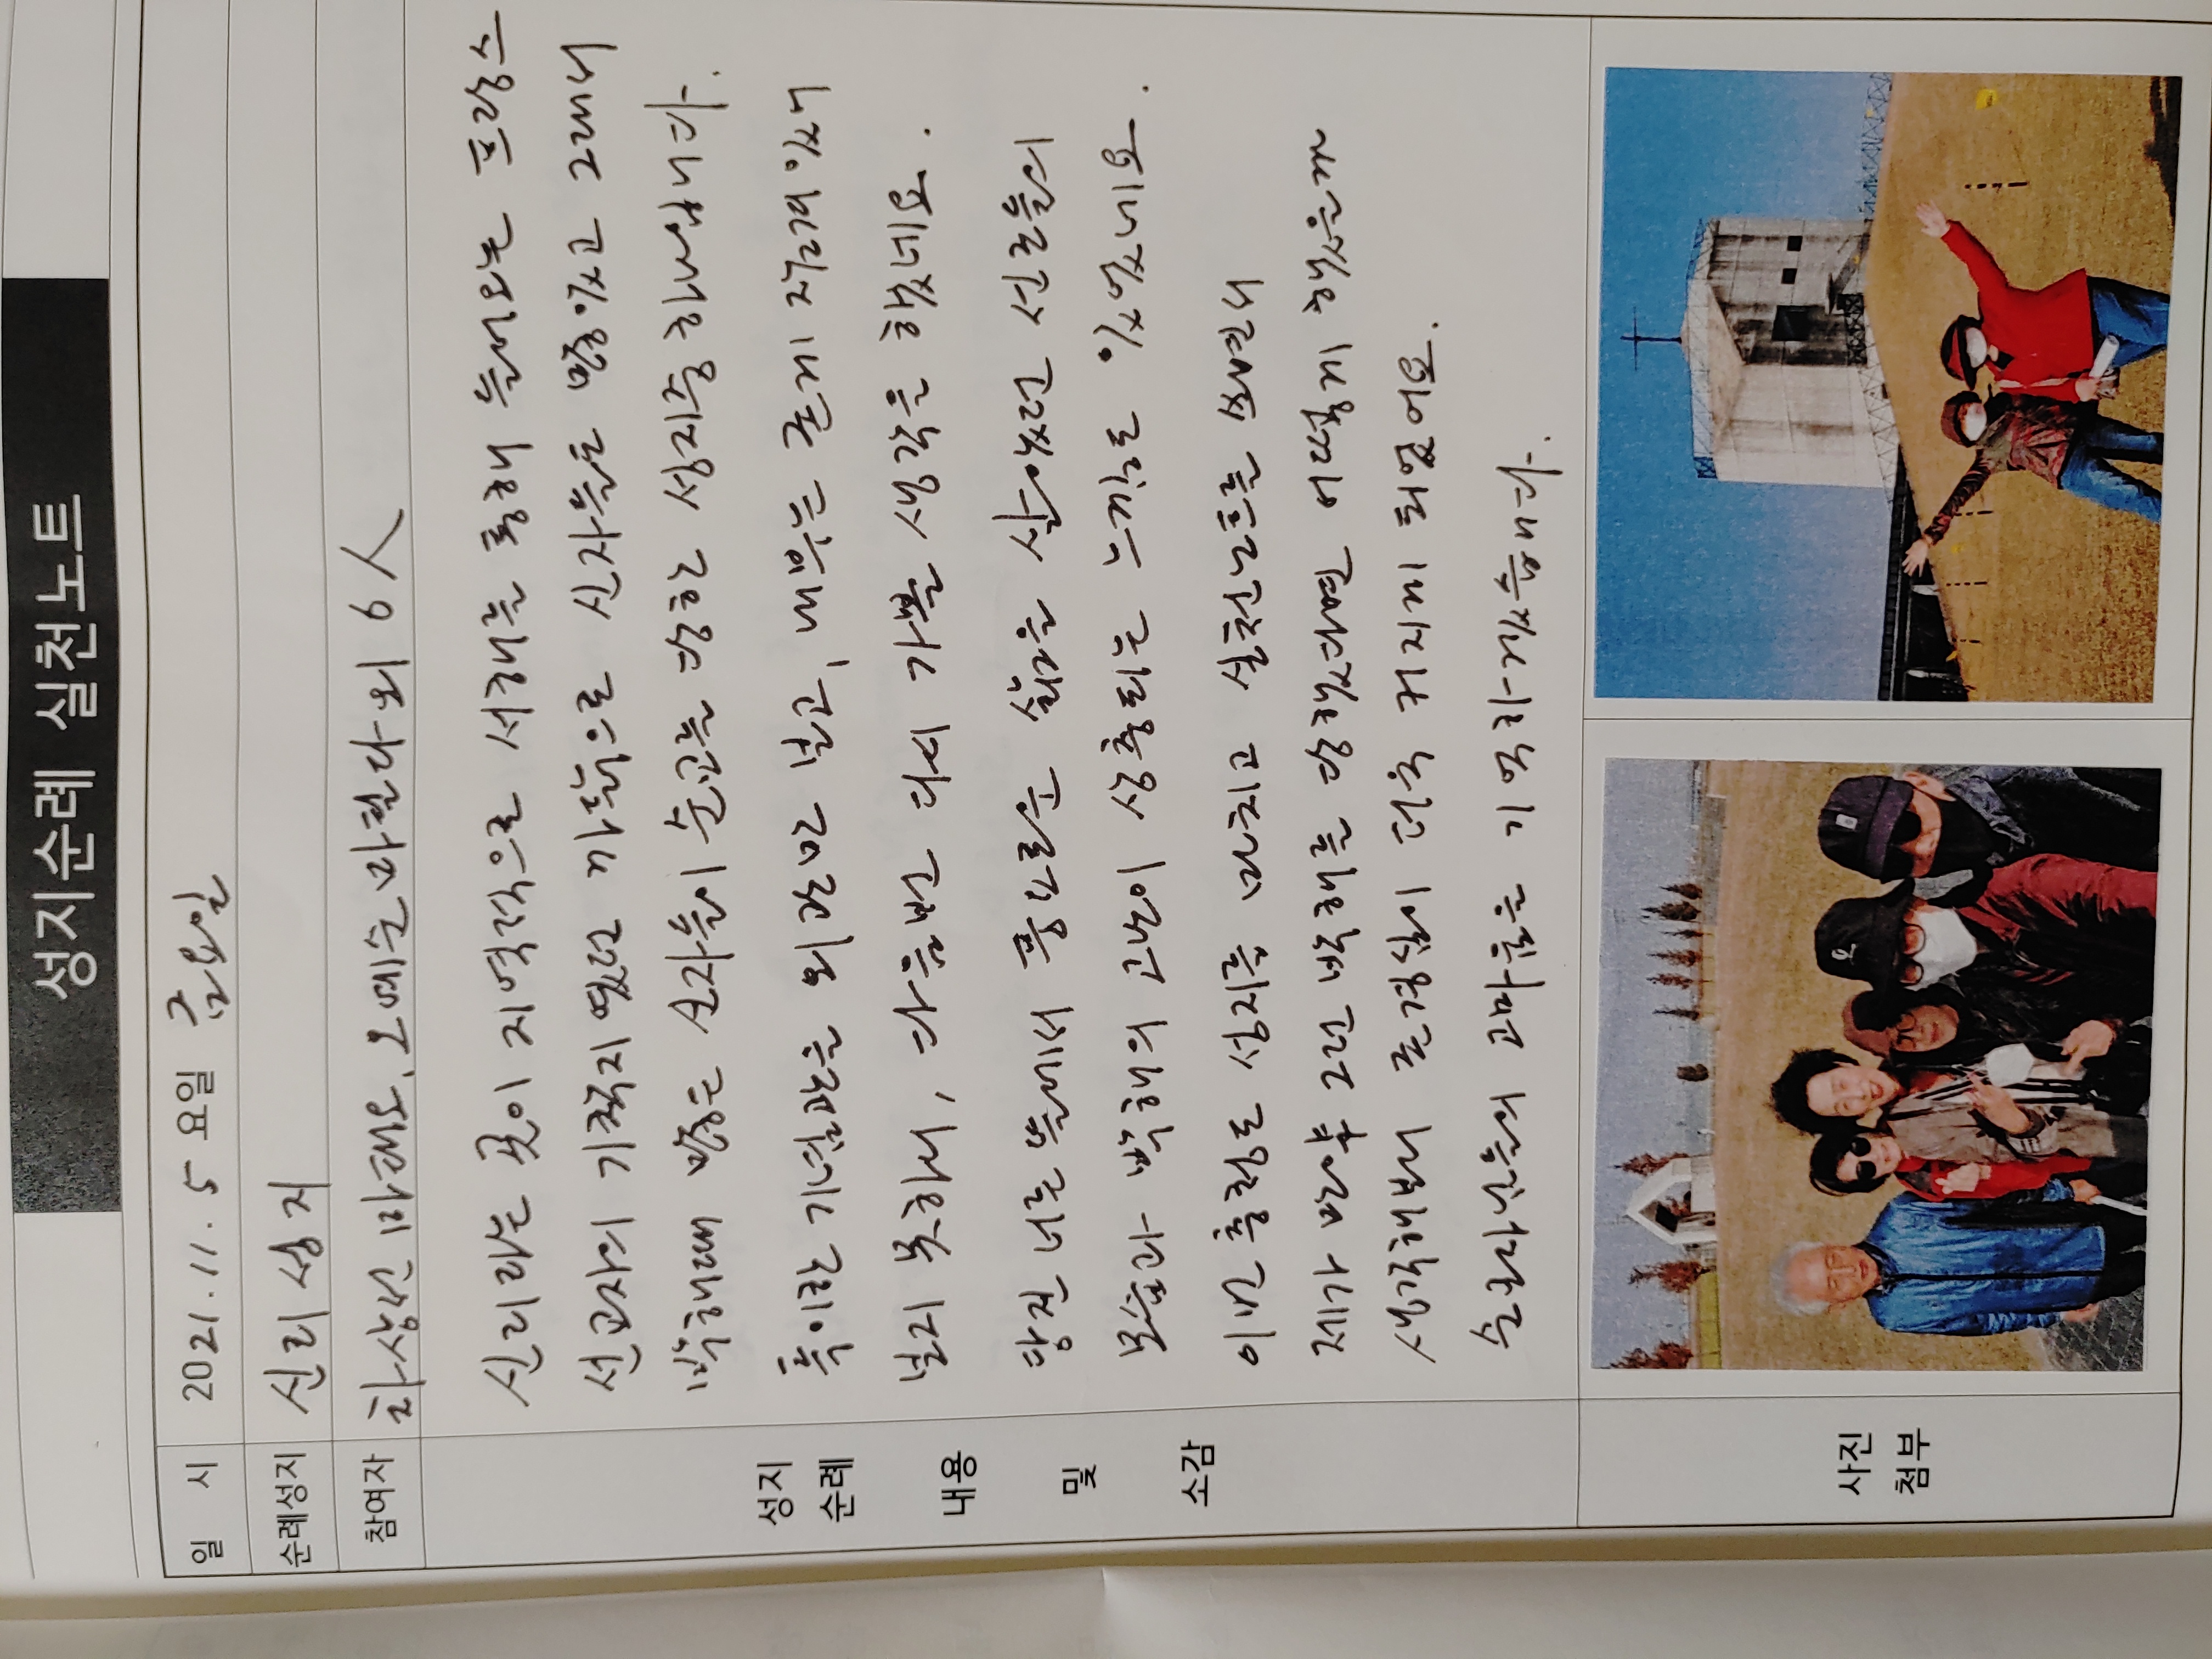 성지순례 실천노트
일 시 2021.11.5 요일 금요일
순례성지 신리 성지
참여자 차상선 마태오, 오예순 마틸다 외 6人
성지
순례
내용
및
소감
신리라는 곳이 지역적으로 서해를 통해 들어오는 프랑스
선교자의 기착지였던 까닭으로 신자들도 많았고 그래서
박해때 많은 신자들이 순교를 당한 성지중 하나입니다.
특이한 기념관을 외관만 보고, 내부는 굳게 잠겨있어
보지 못하니, 다음번 다시 가볼 생각을 했네요.
당진 너른 뜰에서 풍요로운 삶을 살았던 선조들의
모습과 박해의 고난이 상충되는 느낌도 있었네요.
이번 충청도 성지를 마치고 실천노트를 쓰면서
제가 만약 그런 박해를 당했다면 어떻게 했을까
생각해보니 존경심이 더욱 커지게 되었어요.
순교자님들의 고마움을 기억하겠습니다.
사진
첨부